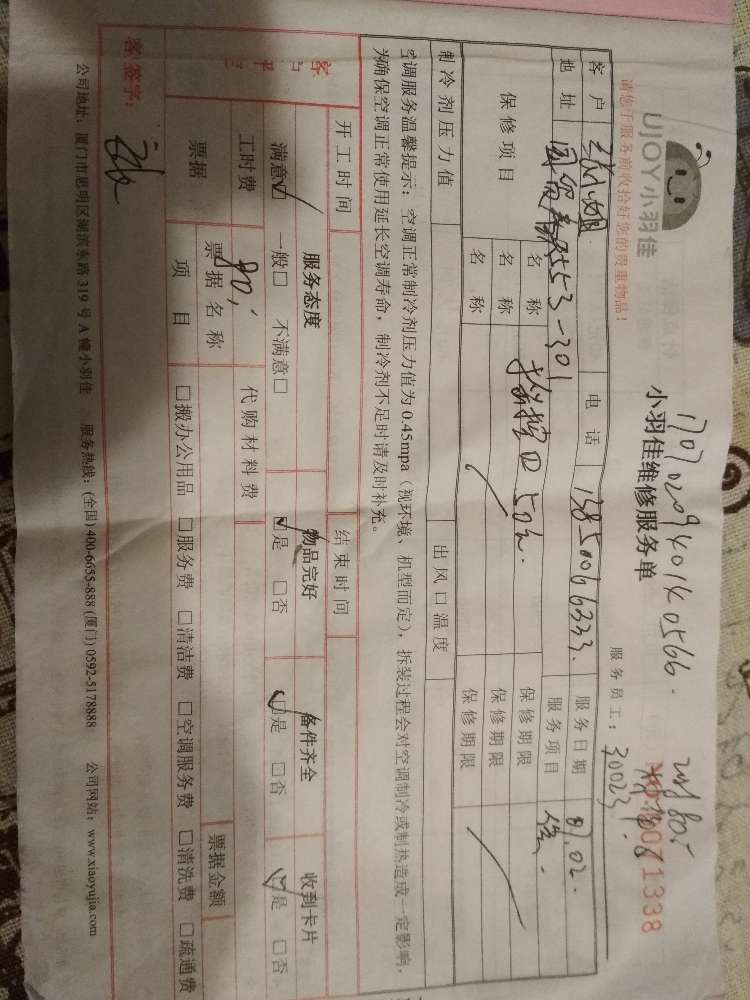 UJOY小羽佳
17070209401K0566.
小羽佳维修服务单
请您于服务前收拾好您的贵重物品!
服务员工: 30023
NO.0071338
客户 电话 13850066333. 服务日期 01.02.
地址 53-301 服务项目
保修项目 名称 保修期限
名称 保修期限
名称 保修期限
制冷剂压力值 出风口温度
空调服务温馨提示: 空调正常制冷剂压力值为0.45mpa(视环境、机型而定),拆装过程会对空调制冷或制热造成一定影响,
为确保空调正常使用延长空调寿命,制冷剂不足时请及时补充。
开工时间 结束时间
服务态度 物品完好 备件齐全 收到卡片
满意☑ 一般□ 不满意□ ☑是 □否 ☑是 □否 ☑是 □否
工时费 80, 代购材料费
票据 票据名称 票据金额
项目 □搬办公用品 □服务费 □清洁费 □空调服务费 □清洗费 □疏通费
客户签字:
公司地址: 厦门市思明区湖滨东路319号A幢小羽佳 服务热线: (全国) 400-6655-888 (厦门) 0592-5178888 公司网站: www.xiaoyujia.com